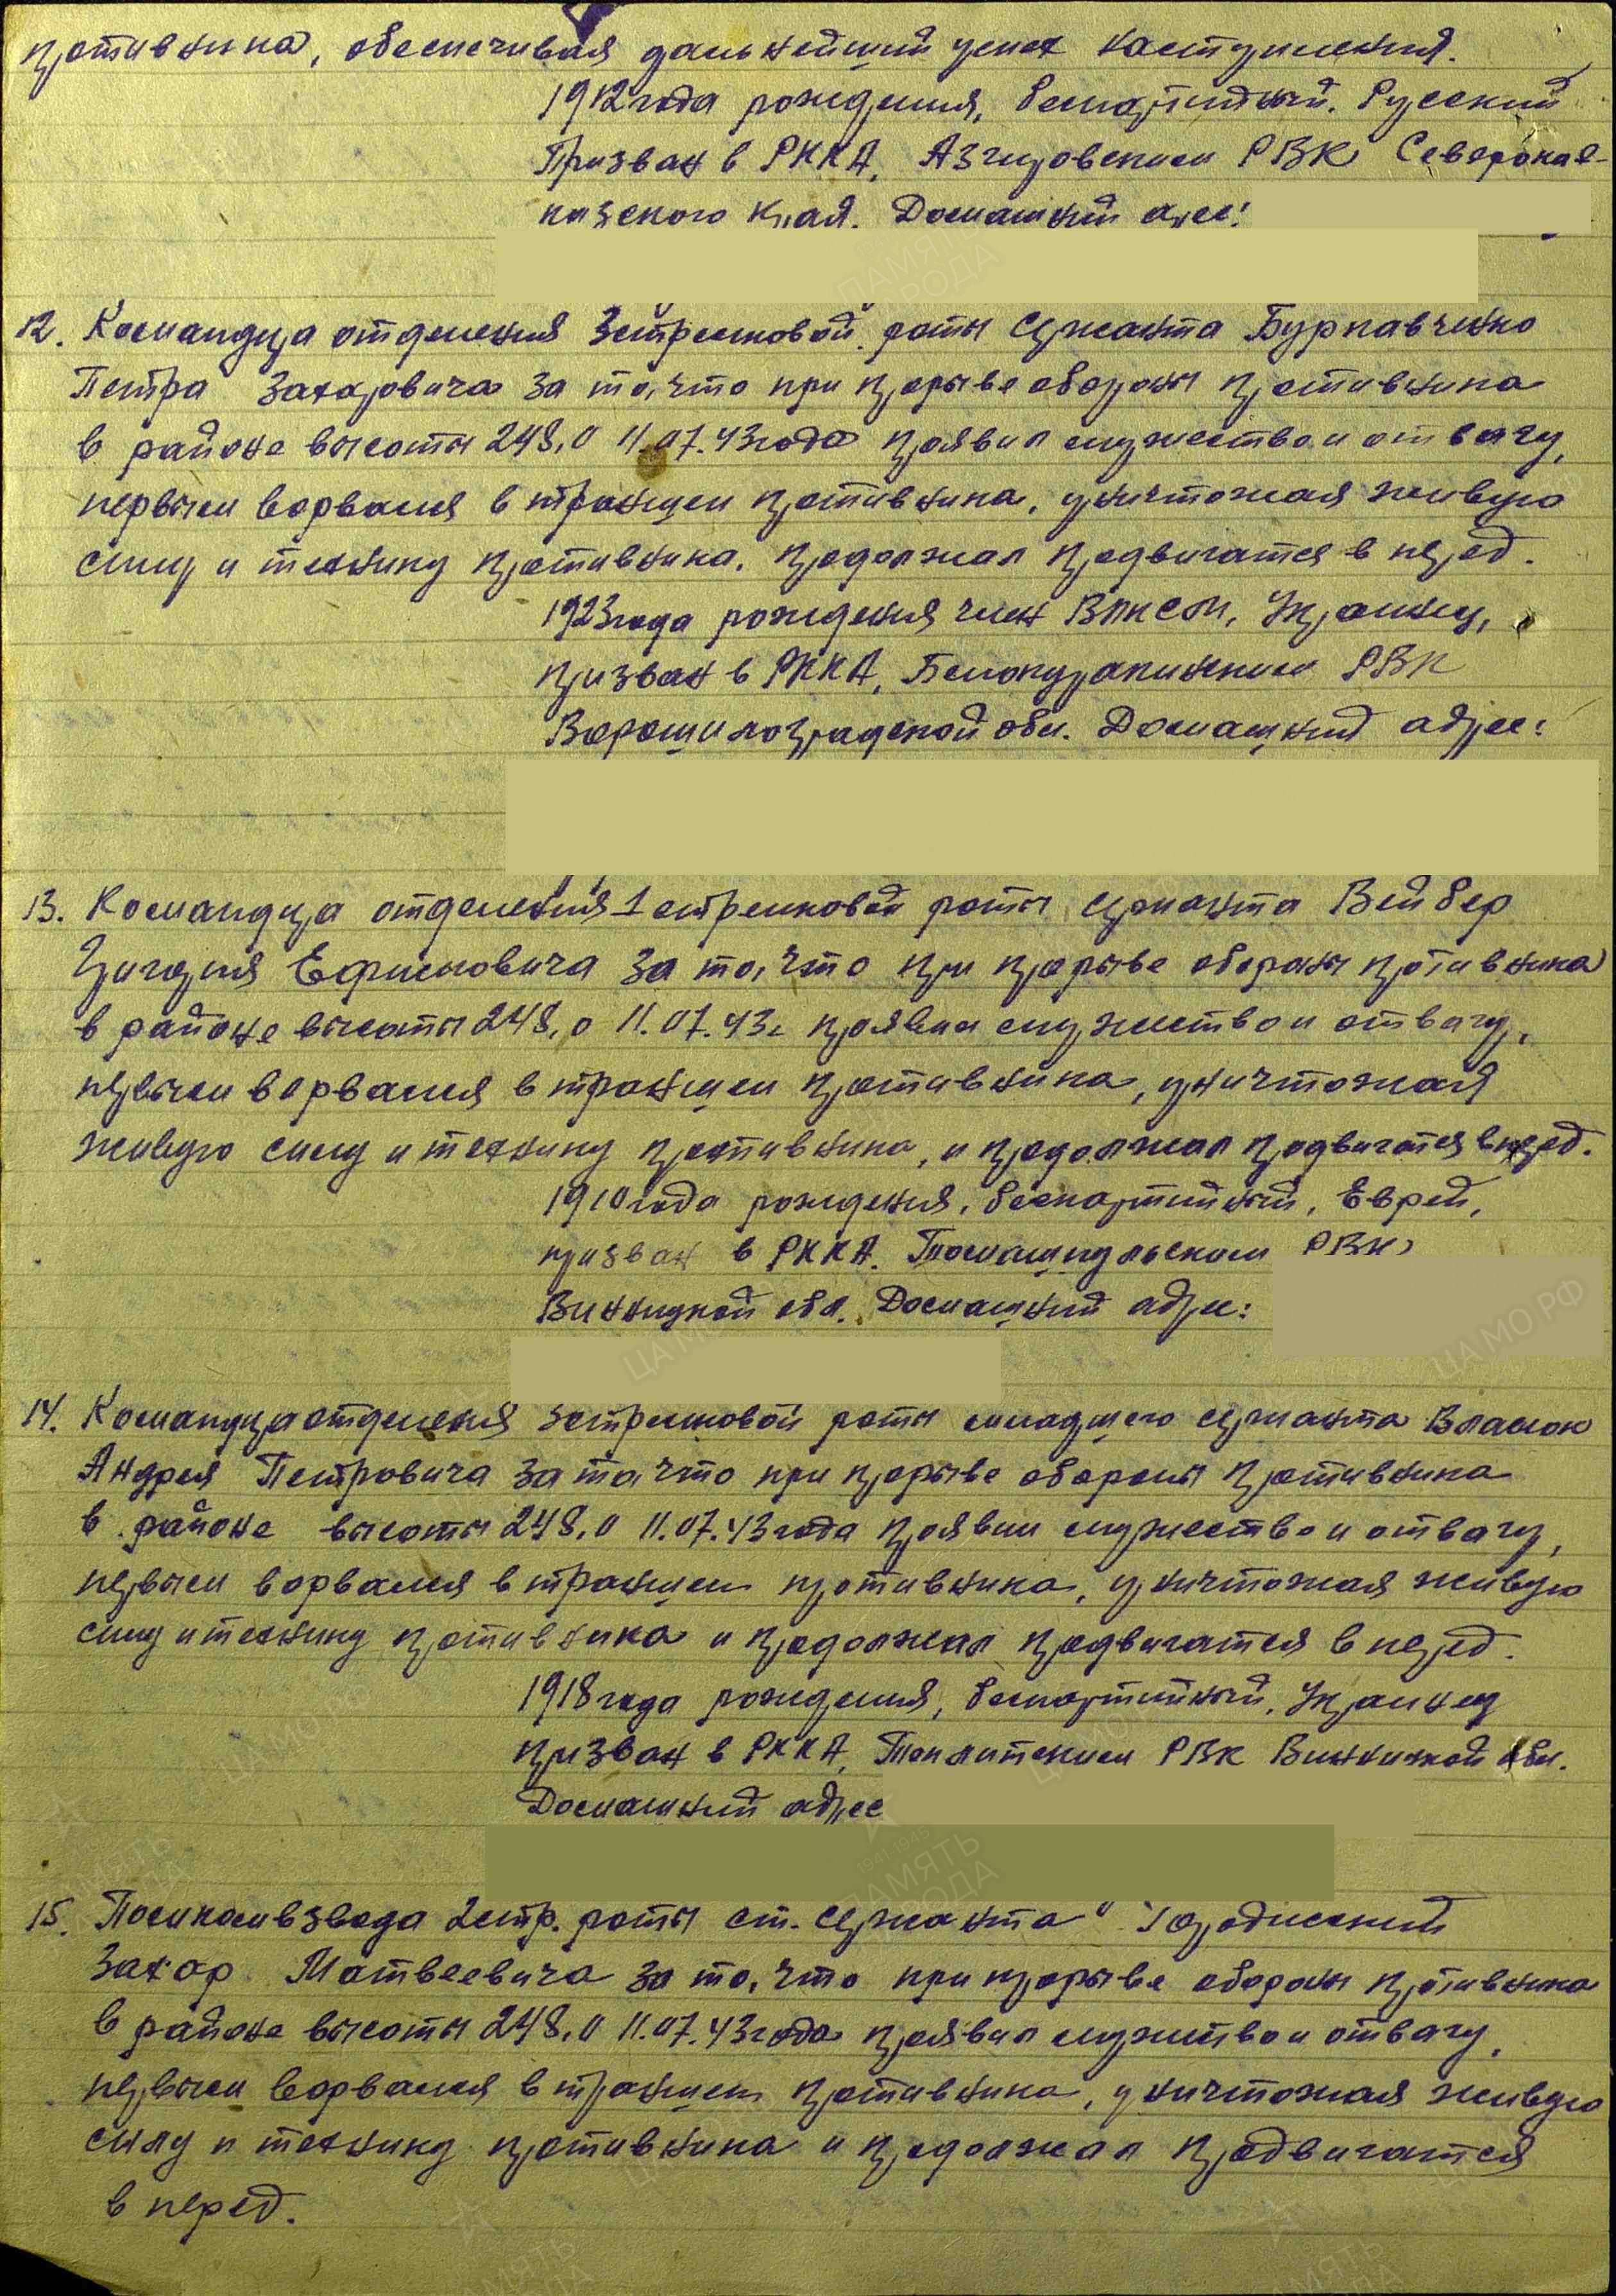 противника, обеспечивая дальнейший успех наступления.
1912 года рождения, беспартийный. Русский
Призван в РККА, Азгировским РВК Северокав-
казского края. Домашний адрес:
12. Командира отделения 3 стрелковой роты сержанта Бурнавченко
Петра Захаровича за то, что при прорыве обороны противника
в районе высоты 248,0 11.07.43 года проявил мужество и отвагу,
первым ворвался в траншеи противника, уничтожая живую
силу и технику противника. продолжал продвигатся в перед.
1923 года рождения член ВЛКСМ, Украинец,
призван в РККА, Белокуракинским РВК
Ворошиловградской обл. Домашний адрес:
13. Командира отделения 1 стрелковой роты сержанта Вейбер
Ефимовича за то, что при прорыве обороны противника
в районе высоты 248,0 11.07.43г проявил мужество и отвагу,
первым ворвался в траншеи противника, уничтожая
живую силу и технику противника, и продолжал продвигатся вперед.
1910 года рождения, беспартийный, Еврей,
призван в РККА. Томашпольским РВК,
Винницкой обл. Домашний адрес:
14. Командира отделения 3 стрелковой роты младшего сержанта Власюк
Андрея Петровича за то что при прорыве обороны противника
в районе высоты 248,0 11.07.43 года проявил мужество и отвагу,
первым ворвался в траншеи противника, уничтожая живую
силу и технику противника и продолжал продвигатся в перед.
1918 года рождения, беспартийный, Украинец
призван в РККА, РВК Винницкой обл.
Домашний адрес
15. Помкомвзвода 2 стр. роты ст. сержанта Городиский
Захар Матвеевича за то, что при прорыве обороны противника
в районе высоты 248,0 11.07.43 года проявил мужество и отвагу,
первым ворвался в траншеи противника, уничтожая живую
силу и технику противника и продолжал продвигатся
в перед.